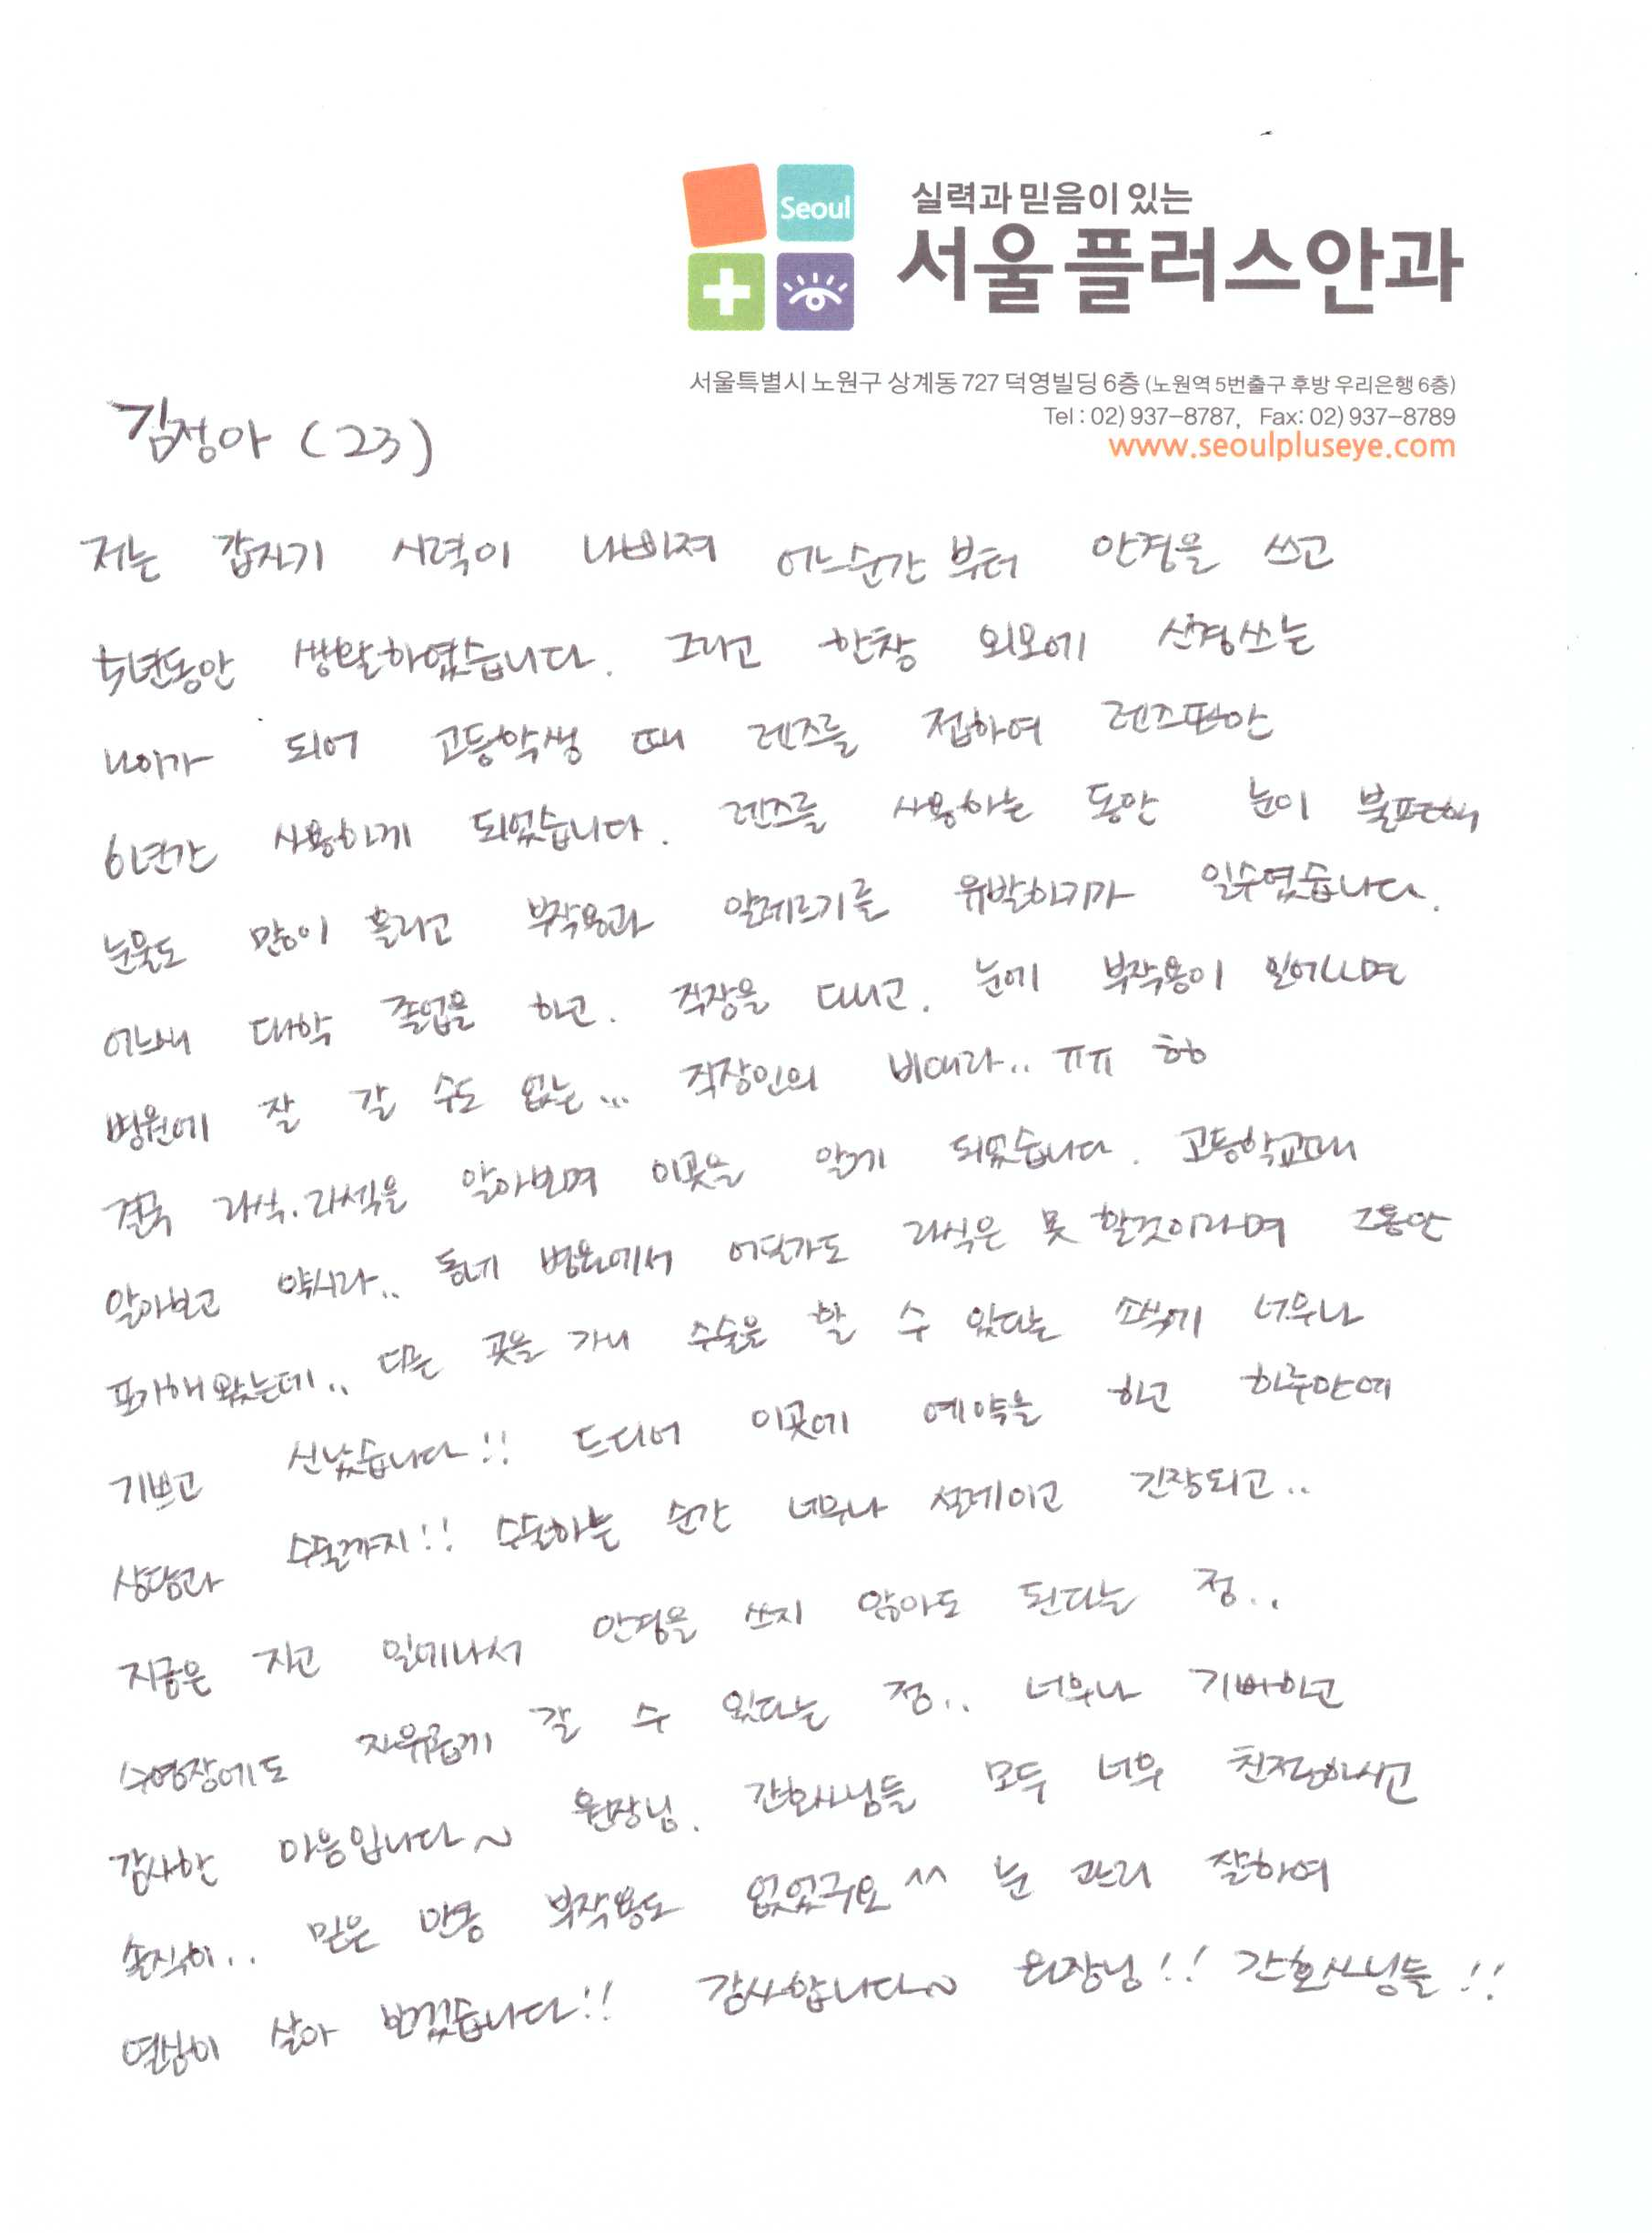 Seoul
실력과 믿음이 있는
서울플러스안과
서울특별시 노원구 상계동 727 덕영빌딩 6층 (노원역 5번출구 후방 우리은행 6층)
Tel : 02) 937-8787, Fax: 02) 937-8789
www.seoulpluseye.com
김정아 (23)
저는 갑자기 시력이 나빠져 어느순간 부터 안경을 쓰고
5년동안 생활하였습니다. 그리고 한창 외모에 신경쓰는
나이가 되어 고등학생 때 렌즈를 접하여 렌즈또한
6년간 사용하게 되었습니다. 렌즈를 사용하는 동안 눈이 불편해
눈물도 많이 흘리고 부작용과 알레르기를 유발하기가 일수였습니다.
어느새 대학 졸업을 하고. 직장을 다니고. 눈에 부작용이 일어나면
병원에 잘 갈 수도 없는... 직장인의 비애라.. ㅠㅠ 헝
결국 라식.라섹을 알아보며 이곳을 알게 되었습니다. 고등학교때
알아보고 약시라.. 동네 병원에서 어딜가도 라식은 못 할것이라며 그동안
포기해 왔는데.. 다른 곳을 가니 수술을 할 수 있다는 소식에 너무나
기쁘고 신났습니다!! 드디어 이곳에 예약을 하고 하루만에
상담과 수술까지!! 수술하는 순간 너무나 설레이고 긴장되고..
지금은 자고 일어나서 안경을 쓰지 않아도 된다는 점..
수영장에도 자유롭게 갈 수 있다는 점.. 너무나 기뻐하고
감사한 마음입니다~ 원장님. 간호사님들 모두 너무 친절하시고
솔직히.. 믿은 만큼 부작용도 없었구요^^ 눈 관리 잘하여
열심히 살아 보겠습니다!! 감사합니다~ 원장님!! 간호사님들!!